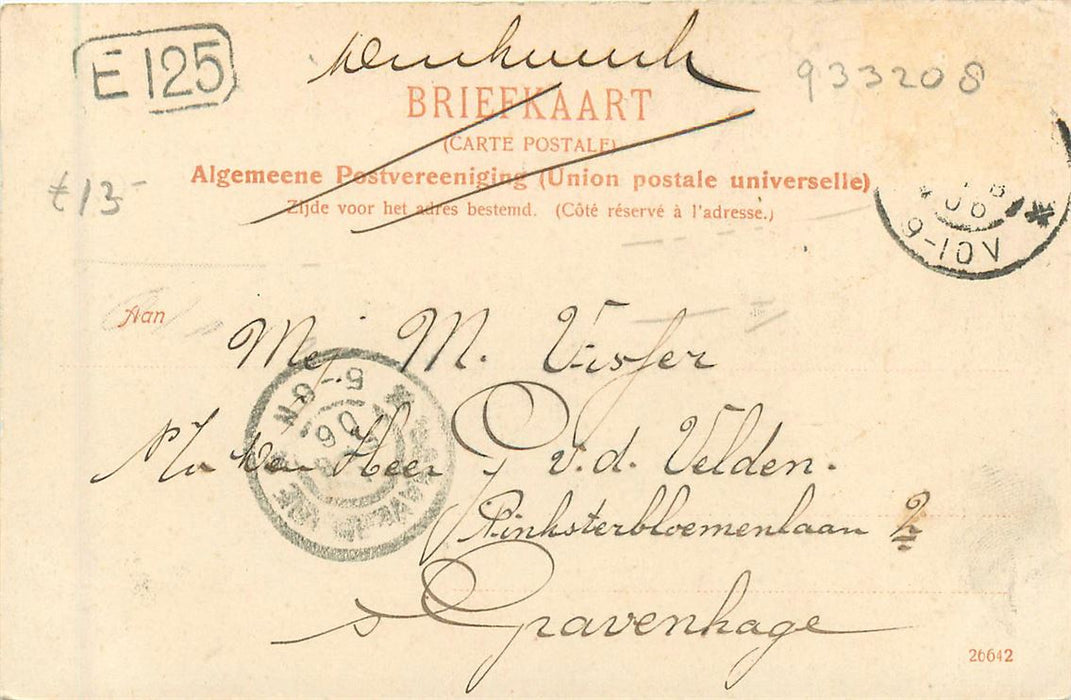 E 125
933208
BRIEFKAART
(CARTE POSTALE)
Algemeene Postvereeniging (Union postale universelle)
Zijde voor het adres bestemd. (Côté réservé à l'adresse.)
13-
06
9-10V
Aan
Mej M. Visser
5-6N
06
p/a den Heer J. v.d. Velden.
Pinksterbloemenlaan 2
s Gravenhage
26642